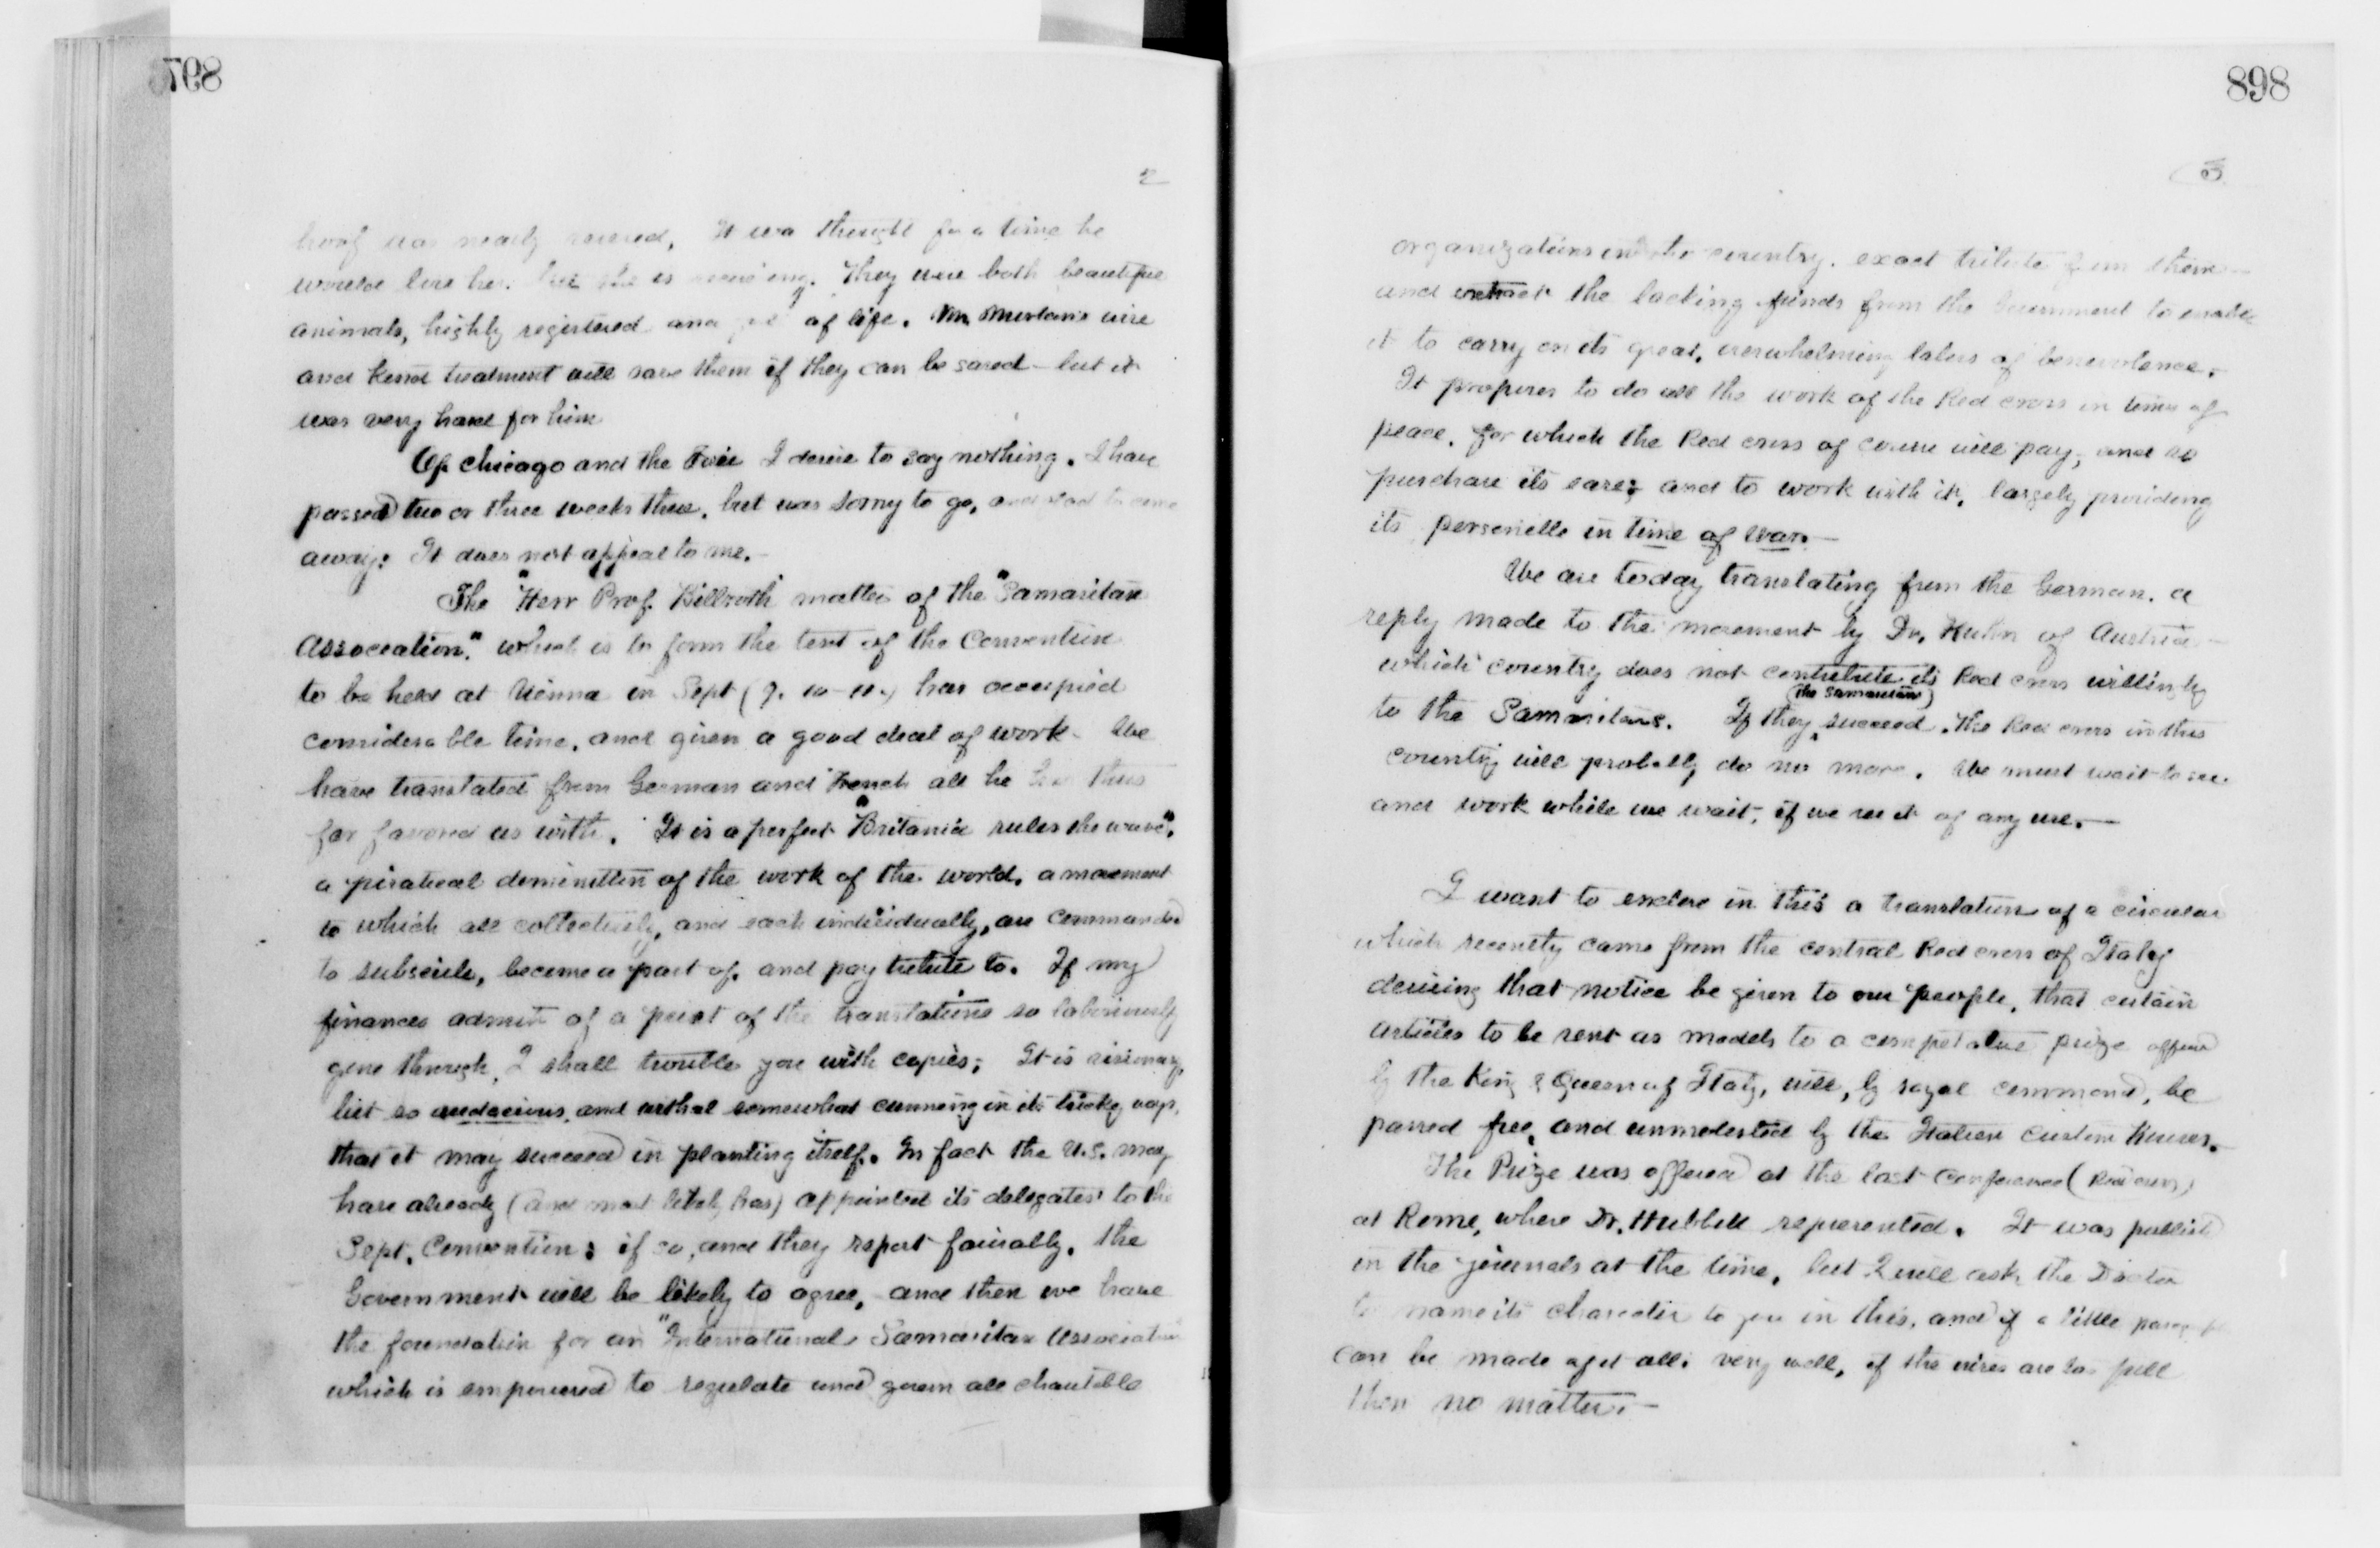 897
2
hoof was nearly severed, It was thought for a time he
would lose her. but she is They were both beautiful
animals, highly registered and of life. Mr. wise
and kind treatment will save them if they can be saved – but it
was very hard for him
Of Chicago and the Fair I desire to say nothing. I have
passed two or three weeks there, but was sorry to go, and glad to come
away. It does not appeal to me. –
The "Herr Prof. Billroth" matter of the "Samaritan
Association." which is to form the text of the Convention
to be held at Vienna in Sept (9. 10 – 11.) has occupied
considerable time, and given a good deal of work – We
have translated from German and French all he has thus
far favored us with. It is a perfect "Britania rules the wave".
a piratical of the work of the world, a movement
to which all collectively, and each individually, are commanded
to subscribe, become a part of, and pay tribute to. If my
finances admit of a print of the translations so laboriously
gone through, I shall trouble you with copies; It is visionary,
but so audacious, and withal somewhat cunning in its tricky way,
that it may succeed in planting itself. In fact the U.S. may
have already (and most likely has) appointed its delegates to the
Sept. Convention; if so, and they report favorably, the
Government will be likely to agree, and then we have
the foundation for an "International Samaritan Association
which is empowered to regulate and govern all charitable
898
3
organizations in the country. exact tribute from them –
and the lacking funds from the Government to enable
it to carry on its great, overwhelming labors of benevolence.
It proposes to do all the work of the Red Cross in time of
peace, for which the Red Cross of course will pay, and so
purchase its ease; and to work with it, largely providing
its personelle in time of war. –
We are today translating from the German, a
reply made to the movement by Dr. of Austria –
which country does not contribute its Red Cross willingly
(the Samaritans)
to the Samaritans. If they succeed, the Red Cross in this
country will probably do no more. We must wait to see.
and work while we wait, if we see it of any use. –
I want to enclose in this a translation of a circular
which recently came from the central Red Cross of Italy
desiring that notice be given to our people, that certain
articles to be sent as models to a competative prize offered
by the King & Queen of Italy, will, by royal command, be
passed free, and unmolested by the Italian Custom Houses.
The Prize was offered at the last Conference (Red Cross)
at Rome, where Dr. Hubbell represented. It was published
in the journals at the time, but I will ask the Doctor
to name its character to you in this, and if a little paragraph
can be made of it all. very well, if the wires are too full
then no matter. –